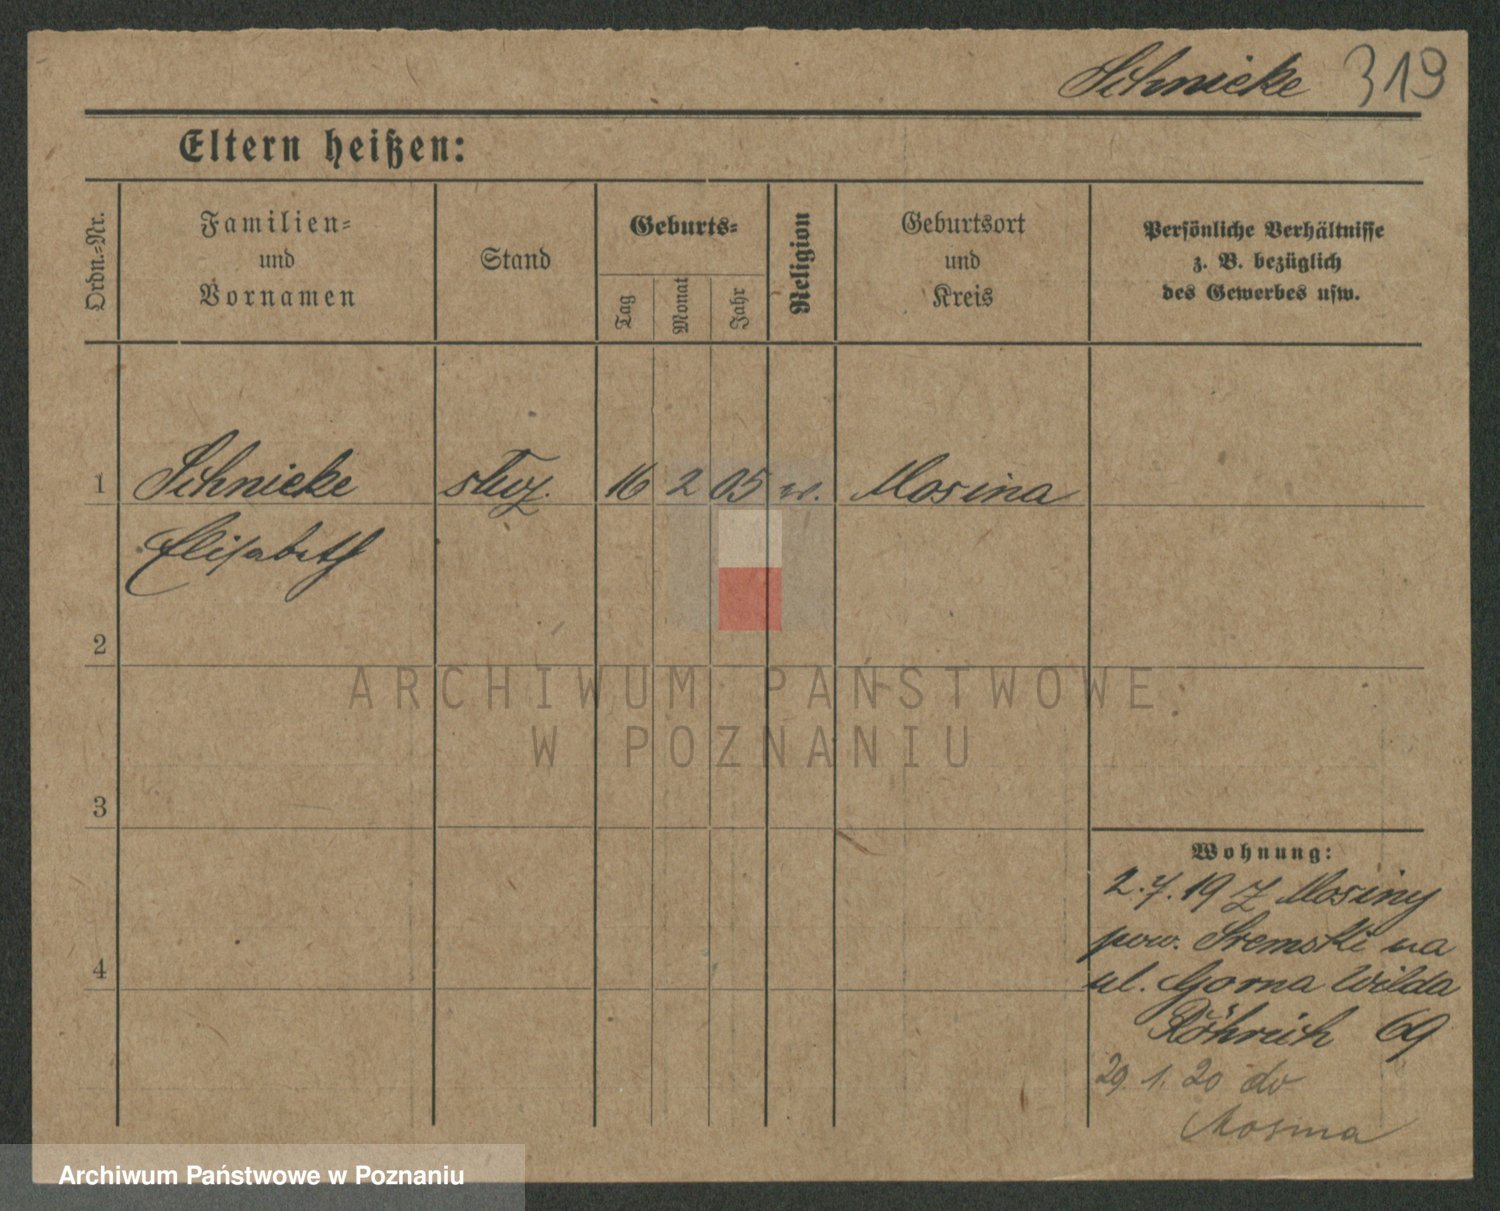 Schnicke 319
Eltern heißen:
Ordn.-Nr.
Familien-
und
Vornamen
Stand
Geburts-
Tag
Monat
Jahr
Religion
Geburtsort
und
Kreis
Persönliche Verhältnisse
z. B. bezüglich
des Gewerbes usw.
1 Schnicke służ. 16 2 05 Mosina
Elisabeth
2
ARCHIWUM PAŃSTWOWE
W POZNANIU
3
Wohnung:
2.7.19 z Mosiny
pow. Śremski na
ul. Gorna Wilda
Röhrich 69
4
29. 1. 20 do
Mosina
Archiwum Państwowe w Poznaniu